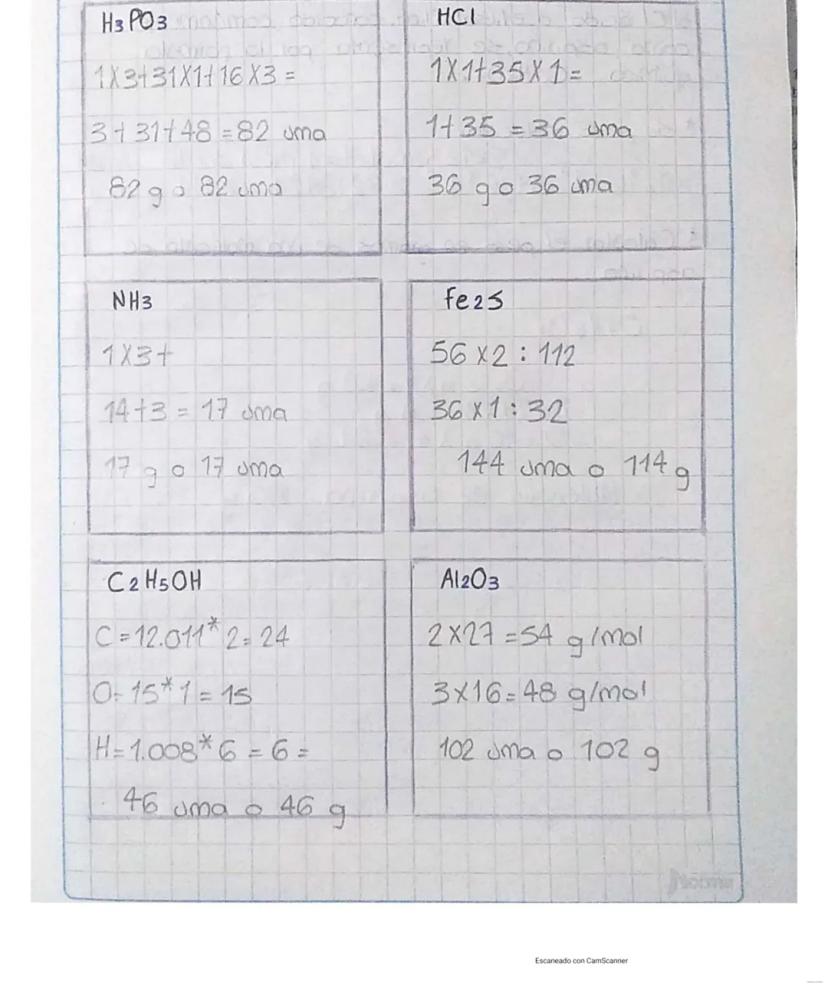 H3PO3
1X3+31X1+16X3=
3+31+48=82 uma
82 g o 82 uma
HCl
1X1+35X1=
1+35=36 uma
36 g o 36 uma
NH3
1X3+
14+3=17 uma
17 g o 17 uma
Fe2S
56X2:112
36X1:32
144 uma o 114 g
C2H5OH
C=12.011*2=24
O=15*1=15
H=1.008*6=6=
46 uma o 46 g
Al2O3
2X27=54 g/mol
3X16=48 g/mol
102 uma o 102 g
Norma
Escaneado con CamScanner